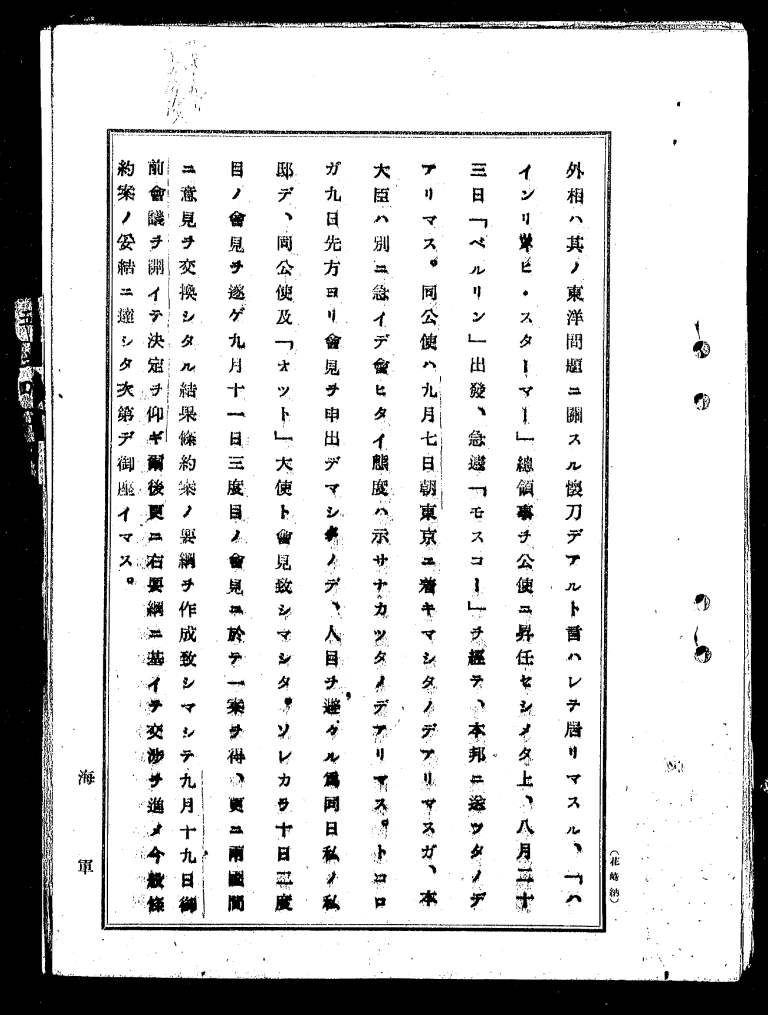 外相ハ其ノ東洋問題ニ關スル懷刀デアルト言ハレテ居リマスル、「ハ
インリッヒ・スターマー」總領事ヲ公使ニ昇任セシメタ上、八月二十
三日「ベルリン」出發、急遽「モスコー」ヲ經テ、本邦ニ送ツタノデ
アリマス。同公使ハ九月七日朝東京ニ着キマシタノデアリマスガ、本
大臣ハ別ニ急イデ會ヒタイ態度ハ示サナカツタノデアリマス。トコロ
ガ九日先方ヨリ會見ヲ申出デマシタノデ、人目ヲ避クル爲同日私ノ私
邸デ、同公使及「オット」大使ト會見致シマシタ。ソレカラ十日二度
目ノ會見ヲ遂ゲ九月十一日三度目ノ會見ニ於テ一案ヲ得、更ニ兩國間
ニ意見ヲ交換シタル結果條約案ノ要綱ヲ作成致シマシテ九月十九日御
前會議ヲ開イテ決定ヲ仰ギ爾後更ニ右要綱ニ基イテ交渉ヲ進メ今般條
約案ノ妥結ニ達シタ次第デ御座イマス。
海軍